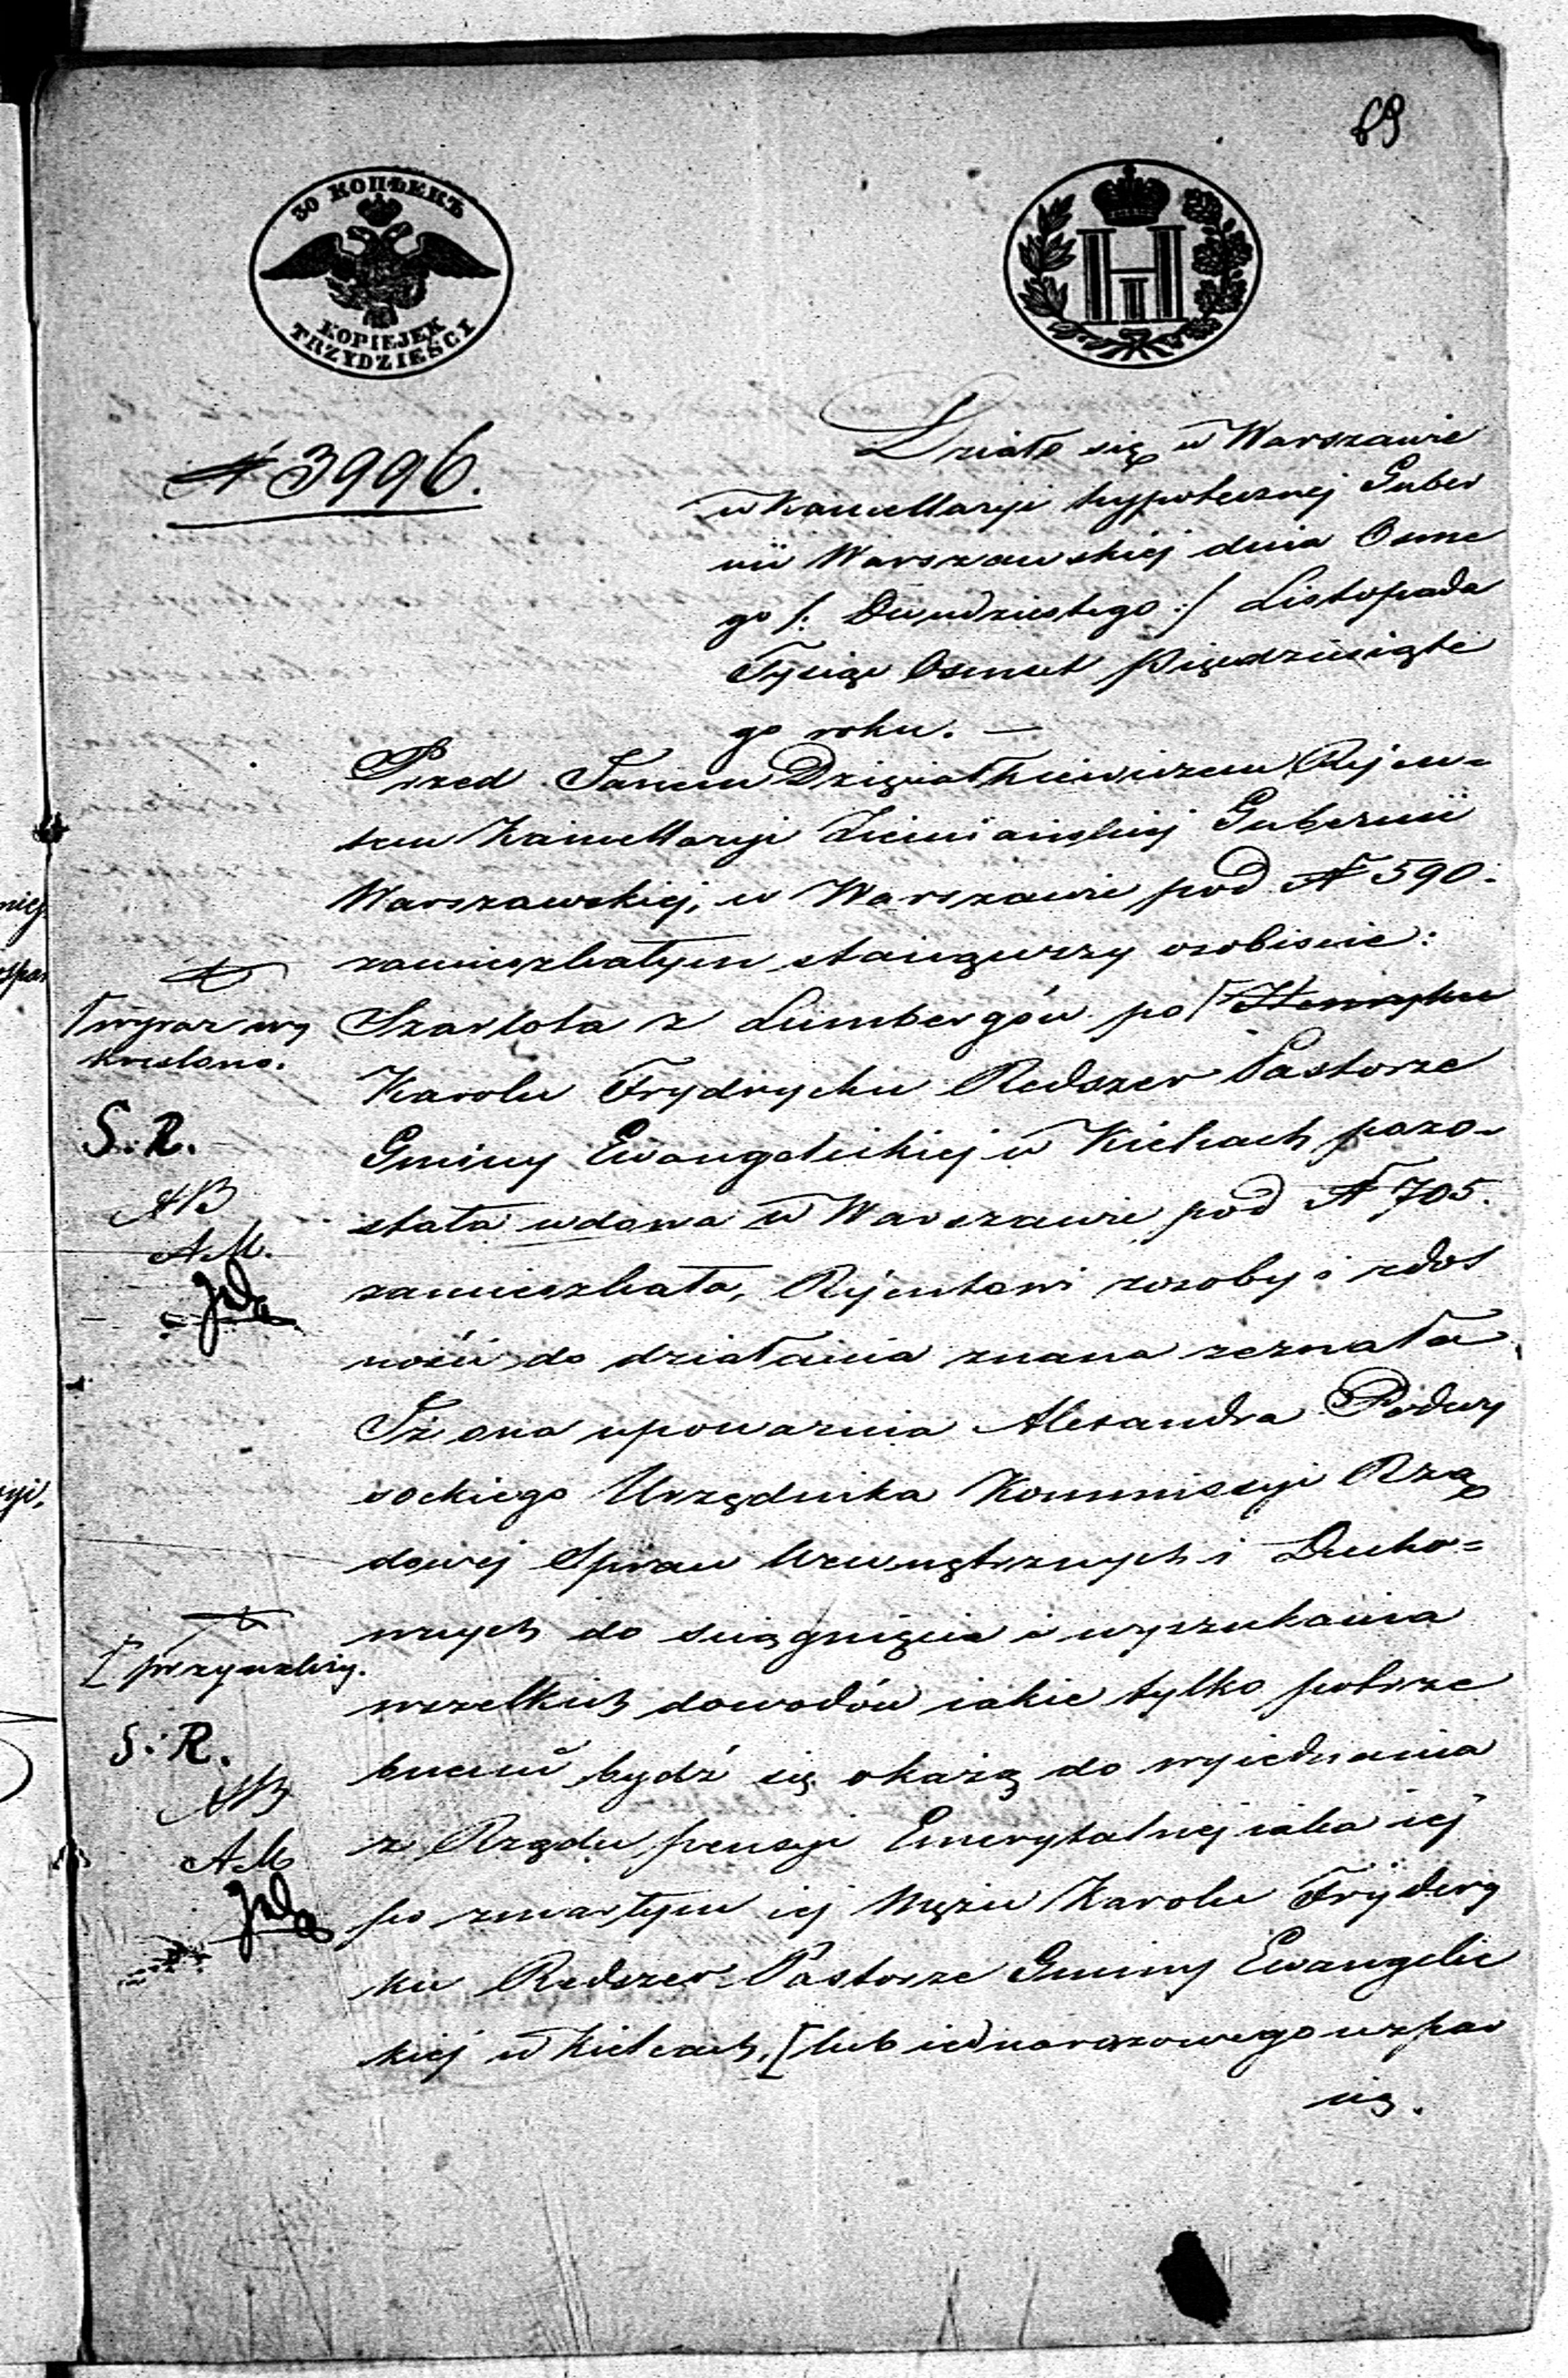 69
30 КОПѢЕКЪ
KOPIEJEK
TRZYDZIEŚCI
№ 3996.
Działo się w Warszawie
w Kancellaryi hypotecznej Guber
nii Warszawskiej dnia Osme
go /: Dwudziestego :/ Listopada
Tysiąc Osmset Pięćdziesiąte
go roku. —
Przed Janem Dzięciałkiewiczem Rejen=
tem Kancellaryi Ziemiańskiej Gubernii
Warszawskiej, w Warszawie pod № 590.
zamieszkałym, stanąwszy osobiście:
Szarlota z Lumbergów po [Henryku
Karolu Frydrychu Redszer Pastorze
Gminy Ewangelickiej w Kielcach pozo-
stała wdowa w Warszawie pod № 705.
zamieszkała, Rejentowi z osoby i zdol
ności do działania znana zeznała.
Iż ona upoważnia Alexandra Podwy
sockiego Urzędnika Kommissyi Rzą
dowej Spraw Wewnętrznych i Ducho=
wnych do sciągnięcia i wyszukania
wszelkich dowodów iakie tylko potrze
bnemi bydź się okażą do wyiednania
z Rządu pensyi Emerytalnej iaka iej
po zmarłym iej Mężu Karolu Fryderyg
ku Redszer Pastorze Gminy Ewangelic
kiej w Kielcach, [lub iednorazowego wspar
cia.
[wyraz wy
kreslono.
S. R.
AB
AM.
[przynależy.
S. R.
AB
AM